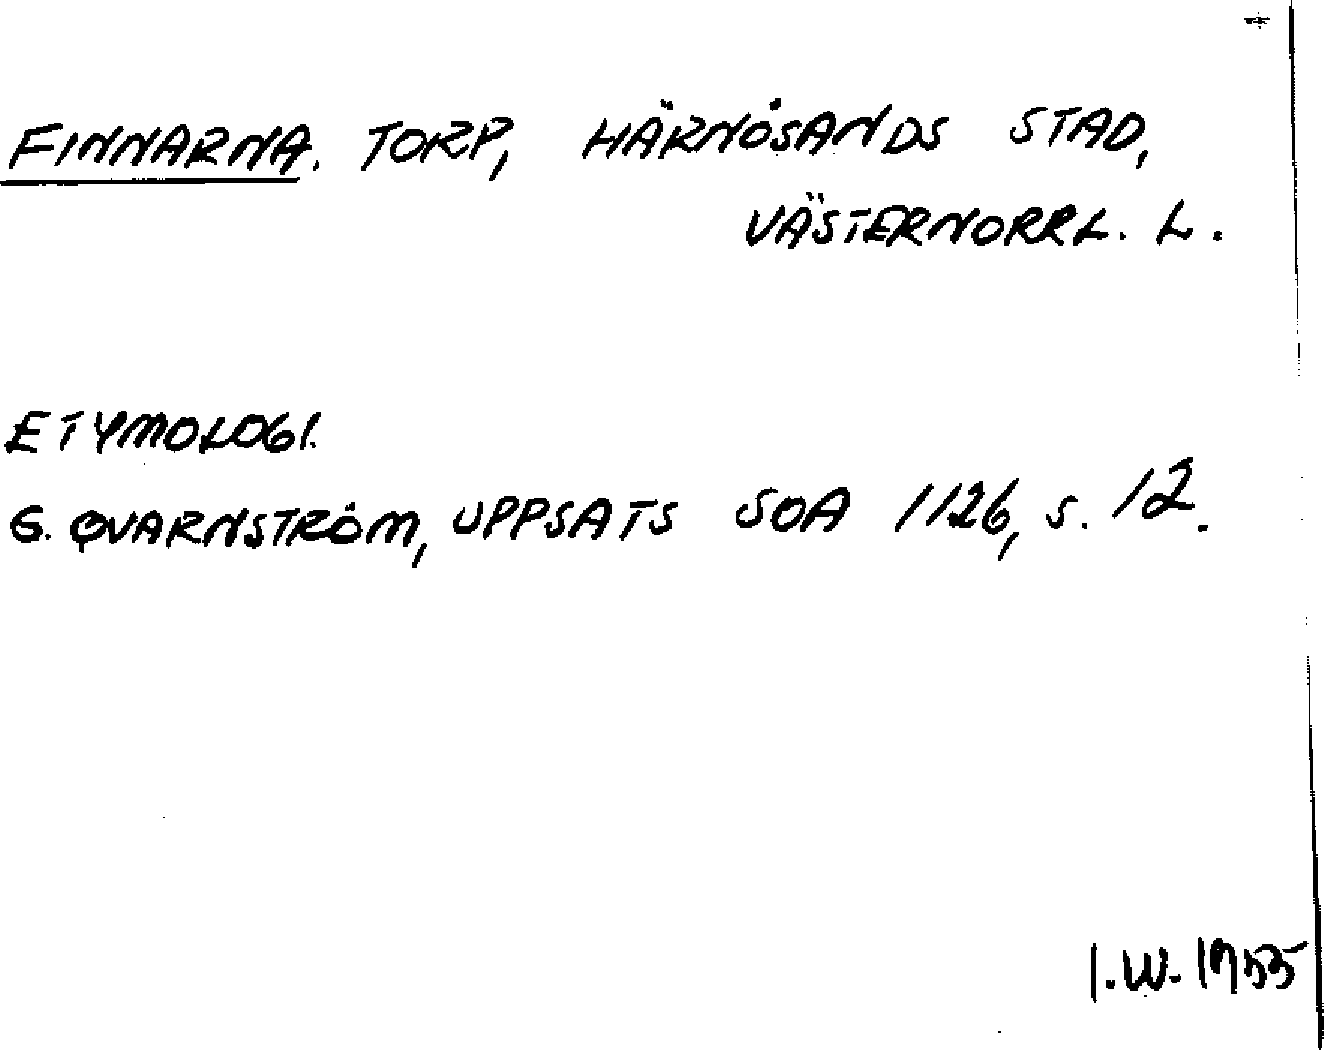 FINNARNA. TORP, HÄRNÖSANDS STAD,
VÄSTERNORRL. L.
ETYMOLOGI.
G. QVARNSTRÖM, UPPSATS SOA 1126, s. 12.
I.W. 1955